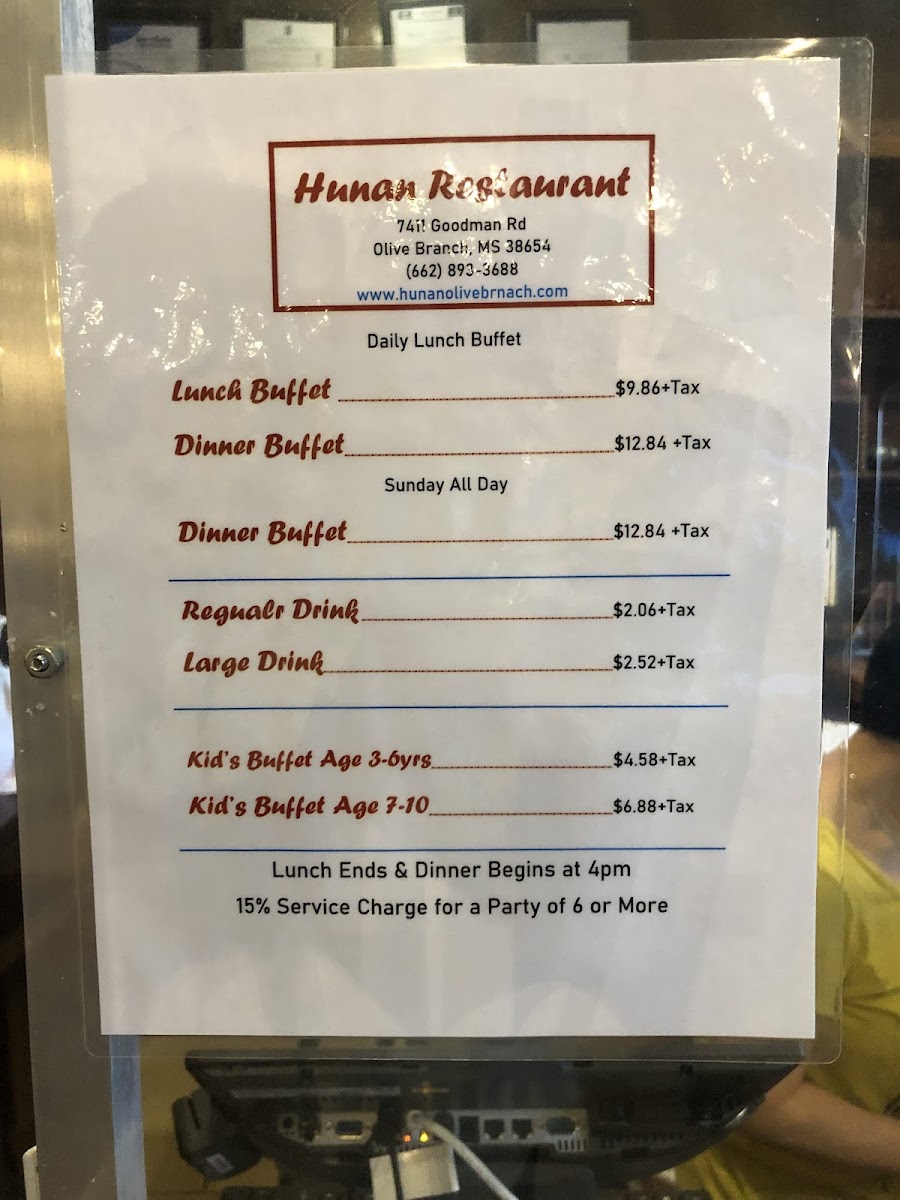 Hunan Restaurant
7411 Goodman Rd
Olive Branch, MS 38654
(662) 893-3688
www.hunanolivebrnach.com
Daily Lunch Buffet
Lunch Buffet $9.86+Tax
Dinner Buffet $12.84 +Tax
Sunday All Day
Dinner Buffet $12.84 +Tax
Regualr Drink $2.06+Tax
Large Drink $2.52+Tax
Kid's Buffet Age 3-6yrs $4.58+Tax
Kid's Buffet Age 7-10 $6.88+Tax
Lunch Ends & Dinner Begins at 4pm
15% Service Charge for a Party of 6 or More